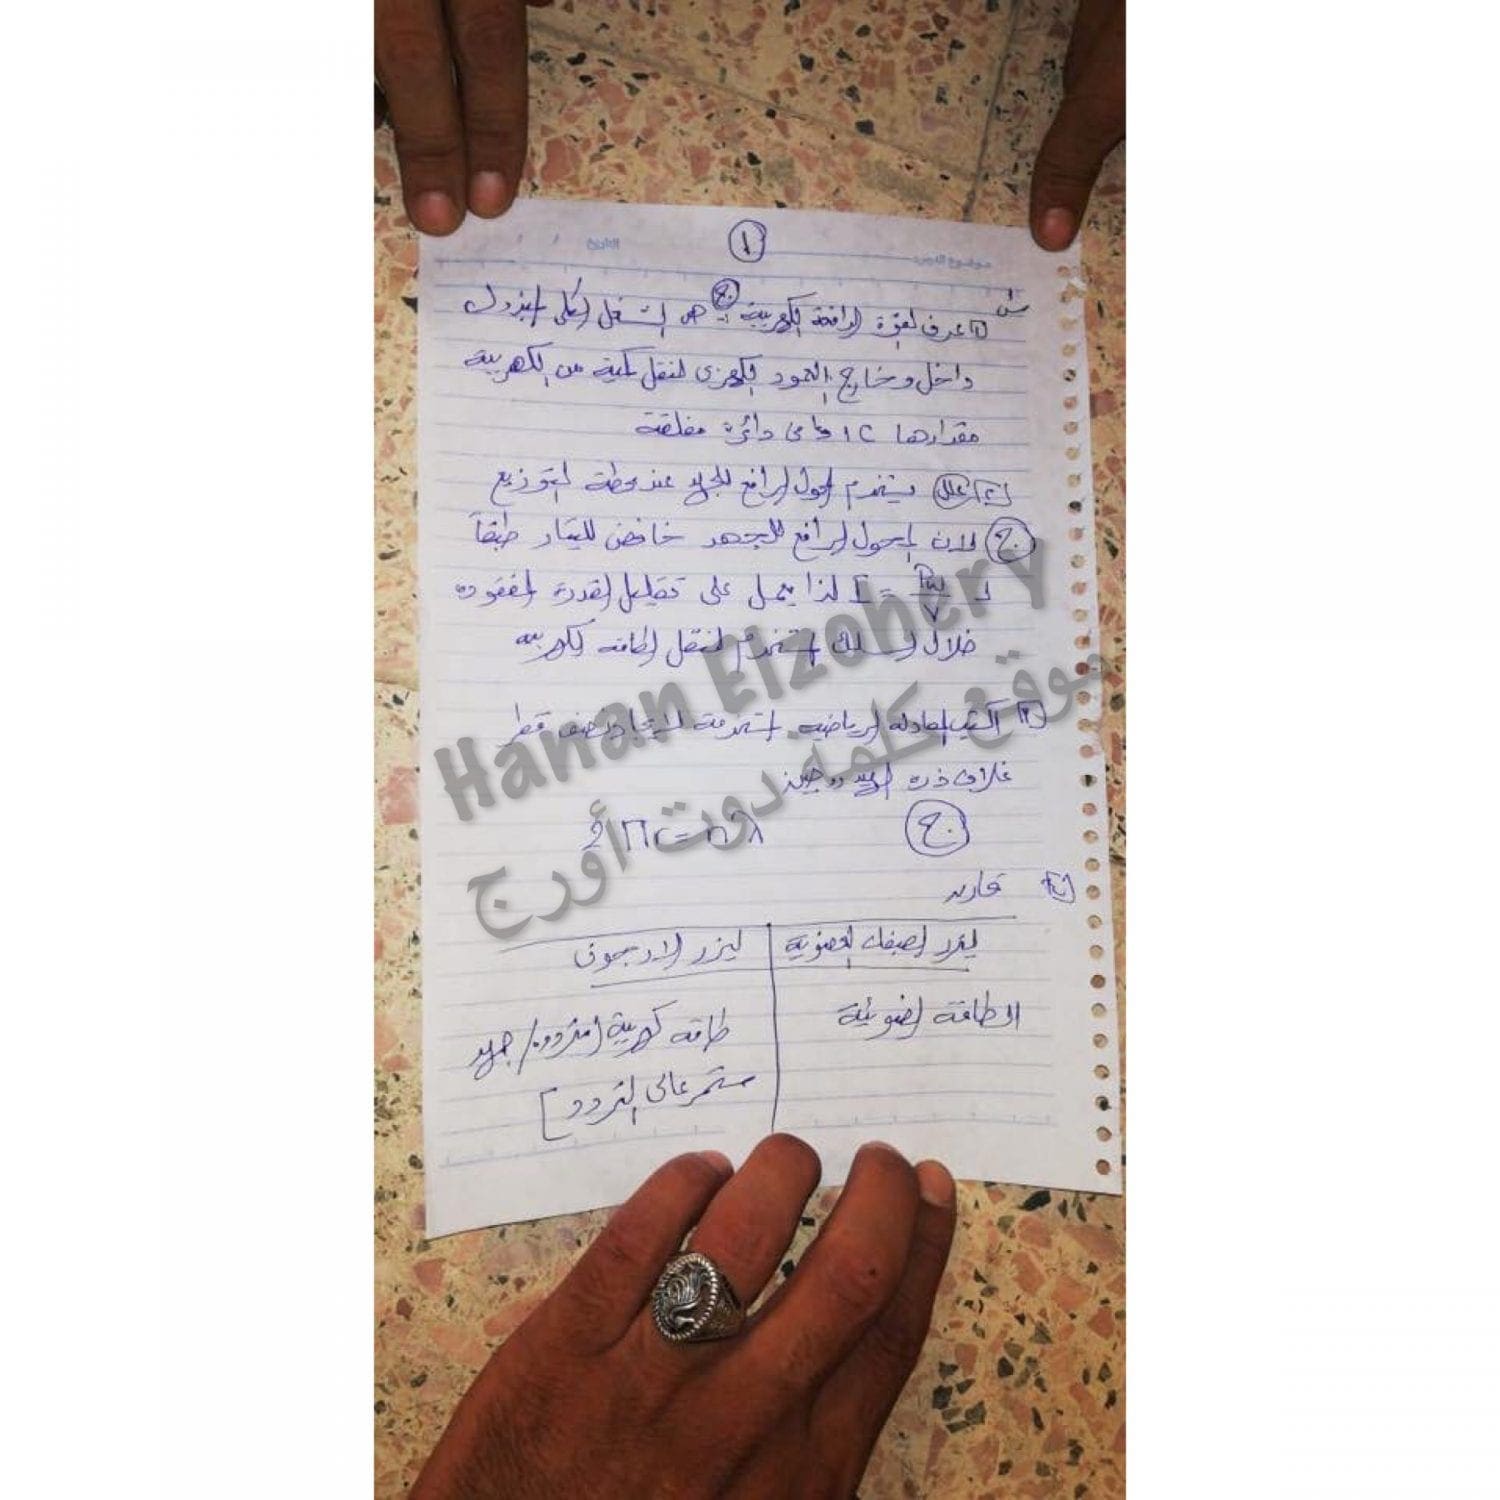 ١
موضوع الدرس
التاريخ
س١
١) عرف القوة الدافعة الكهربية :- ج هى الشغل الكلى المبذول
داخل وخارج العمود الكهربى لنقل كمية من الكهربية
مقدارها 1C فى دائرة مغلقة
٢) علل يستخدم المحول الرافع للجهد عند محطة التوزيع
ج لان المحول الرافع للجهد خافض للتيار طبقاً
لـ I = Pw/V لذا يعمل على تقليل القدرة المفقوده
خلال السلك المستخدم لنقل الطاقه الكهربيه
٣) اكتب المعادله الرياضيه المستخدمة لايجاد نصف قطر
غلاف ذره الهيدروجين
ج 2Πr = nλ
٤) قارن
ليزر الصبغات العضوية | ليزر الارجون
الطاقة الضوئية | طاقه كهربية [متردده / جهد
مستمر عالى التردد]
Hanan Elzohery
موقع كلمة دوت أورج